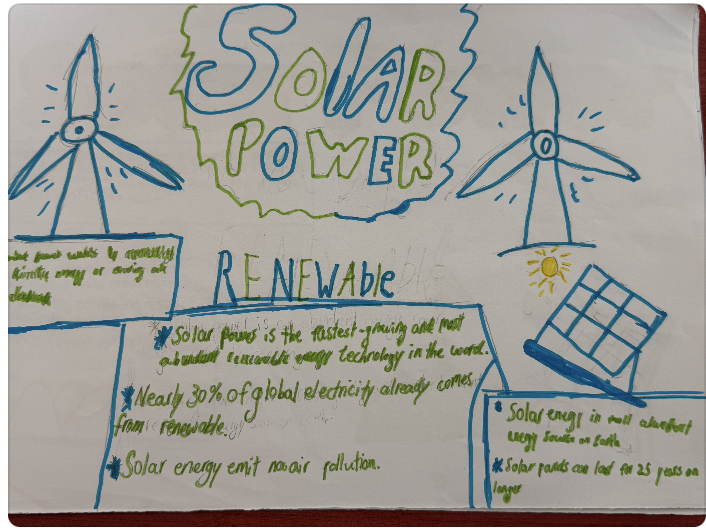 SOLAR
POWER
RENEWAble
power works by
kinetic energy or
Solar power is the fastest-growing and most
abundant renewable energy technology in the world.
Nearly 30% of global electricity already comes
from renewable.
Solar energy emit no air pollution.
Solar energy in most abundant
energy source on Earth
Solar panels can last for 25 years on
longer